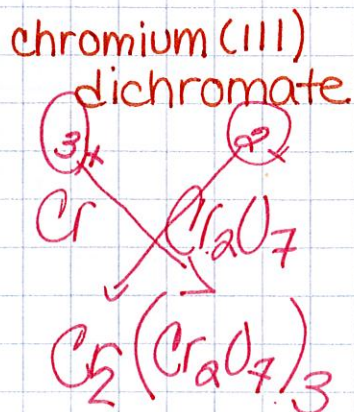 chromium (III)
dichromate
3+ 2-
Cr Cr₂O₇
Cr₂(Cr₂O₇)₃